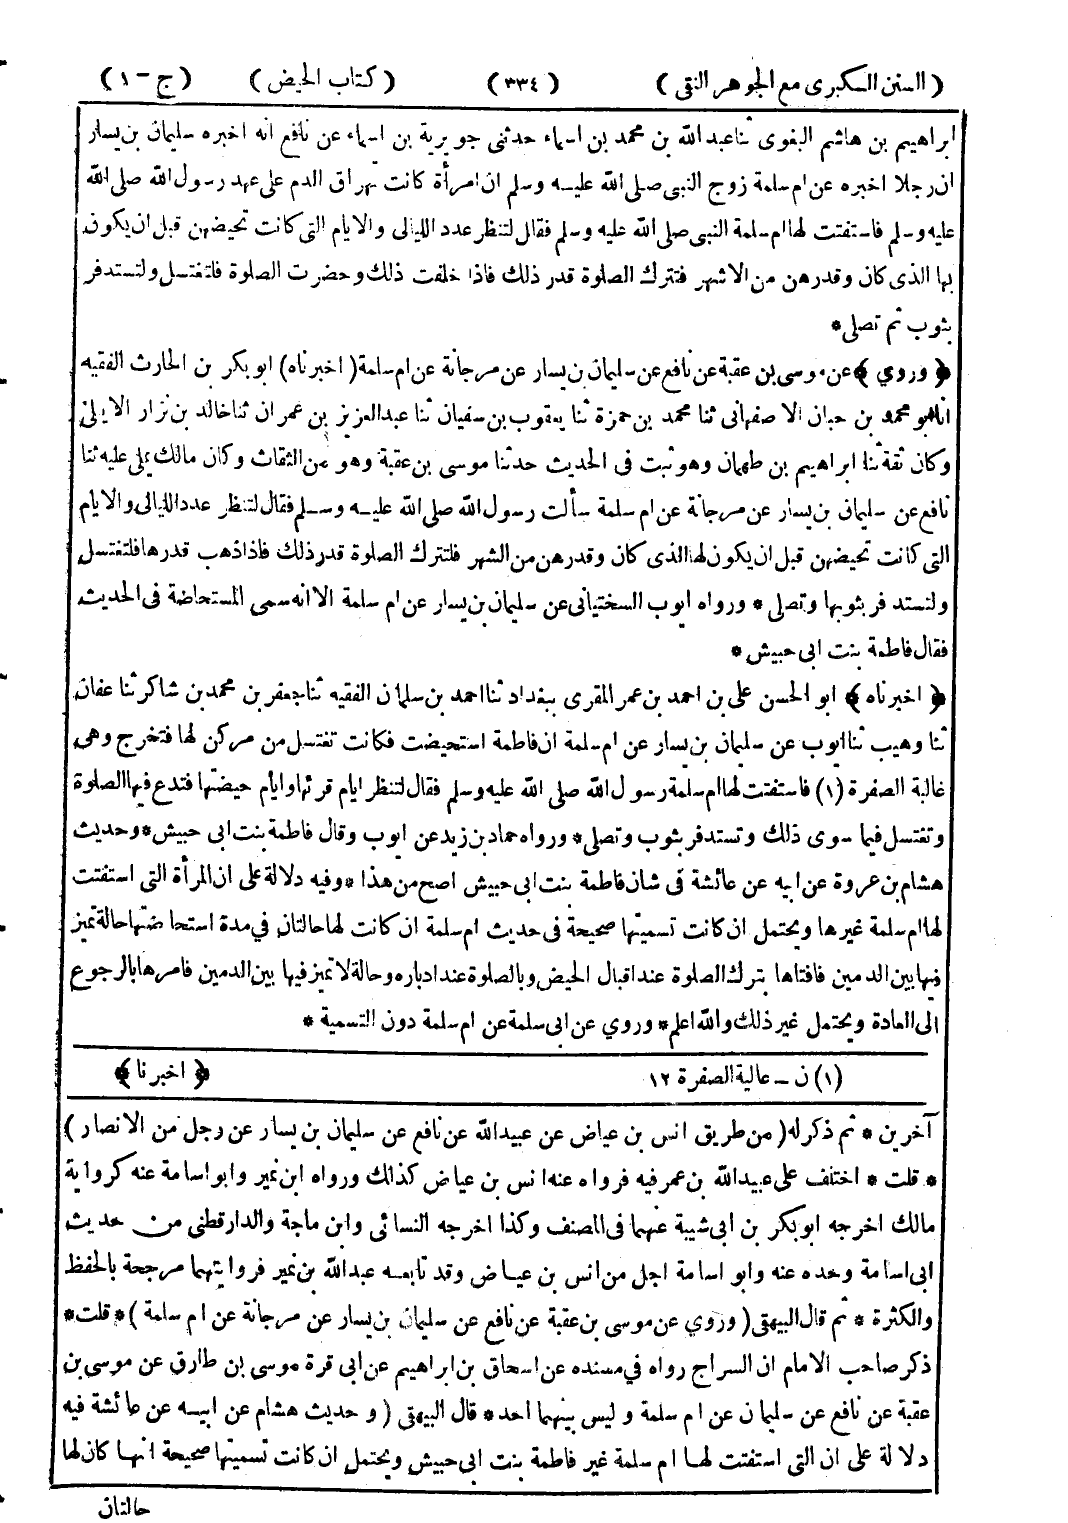 (السنن الكبرى مع الجوهر النقى) (٣٣٤) (كتاب الحيض) (ج-١)
ابراهيم بن هاشم البغوى ثنا عبد الله بن محمد بن اسماء حدثنى جويرية بن اسماء عن نافع انه اخبره سليمان بن يسار
ان رجلا اخبره عن ام سلمة زوج النبى صلى الله عليه وسلم ان امرأة كانت تهراق الدم على عهد رسول الله صلى الله
عليه وسلم فاستفتت لها ام سلمة النبى صلى الله عليه وسلم فقال لتنظر عدد الليالى والايام التى كانت تحيضهن قبل ان يكون
بها الذى كان وقدرهن من الاشهر فتترك الصلوة قدر ذلك فاذا خلفت ذلك وحضرت الصلوة فلتغتسل ولتستدفر
بثوب ثم تصلى*
﴿وروي﴾ عن موسى بن عقبة عن نافع عن سليمان بن يسار عن مرجانة عن ام سلمة (اخبرناه) ابو بكر بن الحارث الفقيه
انا ابو محمد بن حيان الاصفهانى ثنا محمد بن حمزة ثنا يعقوب بن سفيان ثنا عبد العزيز بن عمران ثنا خالد بن نزار الايلى
وكان ثقة ثنا ابراهيم بن طهمان وهو ثبت فى الحديث حدثنا موسى بن عقبة وهو من الثقات وكان مالك يملى عليه ثنا
نافع عن سليمان بن يسار عن مرجانة عن ام سلمة سألت رسول الله صلى الله عليه وسلم فقال لتنظر عدد الليالى والايام
التى كانت تحيضهن قبل ان يكون لها الذى كان وقدرهن من الشهر فلتترك الصلوة قدر ذلك فاذا ذهب قدرها فلتغتسل
ولتستدفر بثوبها وتصلى* ورواه ايوب السختيانى عن سليمان بن يسار عن ام سلمة الا انه سمى المستحاضة فى الحديث
فقال فاطمة بنت ابى حبيش*
﴿اخبرناه﴾ ابو الحسن على بن احمد بن عمر المقرى ببغداد ثنا احمد بن سلمان الفقيه ثنا جعفر بن محمد بن شاكر ثنا عفان
ثنا وهيب ثنا ايوب عن سليمان بن يسار عن ام سلمة ان فاطمة استحيضت فكانت تغتسل من مركن لها فتخرج وهى
غالبة الصفرة (١) فاستفتت لها ام سلمة رسول الله صلى الله عليه وسلم فقال لتنظر ايام قرئها وايام حيضتها فتدع فيها الصلوة
وتغتسل فيما سوى ذلك وتستدفر بثوب وتصلى* ورواه حماد بن زيد عن ايوب وقال فاطمة بنت ابى حبيش* وحديث
هشام بن عروة عن ابيه عن عائشة فى شان فاطمة بنت ابى حبيش اصح من هذا* وفيه دلالة على ان المرأة التى استفتت
لها ام سلمة غيرها ويحتمل ان كانت تسميتها صحيحة فى حديث ام سلمة ان كانت لها حالتان فى مدة استحاضتها حالة تميز
فيها بين الدمين فافتاها بترك الصلوة عند اقبال الحيض وبالصلوة عند ادباره وحالة لا تميز فيها بين الدمين فامرها بالرجوع
الى العادة ويحتمل غير ذلك والله اعلم* وروي عن ابى سلمة عن ام سلمة دون التسمية*
(١) ن - عالية الصفرة ١٢ ﴿اخبرنا﴾
آخرين* ثم ذكر له (من طريق انس بن عياض عن عبيد الله عن نافع عن سليمان بن يسار عن رجل من الانصار)
* قلت * اختلف على عبيد الله بن عمر فيه فرواه عنه انس بن عياض كذلك ورواه ابن نمير وابو اسامة عنه كرواية
مالك اخرجه ابو بكر بن ابى شيبة عنهما فى المصنف وكذا اخرجه النسائى وابن ماجة والدار قطنى من حديث
ابى اسامة وحده عنه وابو اسامة اجل من انس بن عياض وقد تابعه عبد الله بن نمير فروايتهما مرجحة بالحفظ
والكثرة* ثم قال البيهقى (وروي عن موسى بن عقبة عن نافع عن سليمان بن يسار عن مرجانة عن ام سلمة)* قلت*
ذكر صاحب الامام ان السراج رواه فى مسنده عن اسحاق بن ابراهيم عن ابى قرة موسى بن طارق عن موسى بن
عقبة عن نافع عن سليمان عن ام سلمة وليس بينهما احد* قال البيهقى (وحديث هشام عن ابيه عن عائشة فيه
دلالة على ان التى استفتت لها ام سلمة غير فاطمة بنت ابى حبيش ويحتمل ان كانت تسميتها صحيحة انها كان لها
حالتان